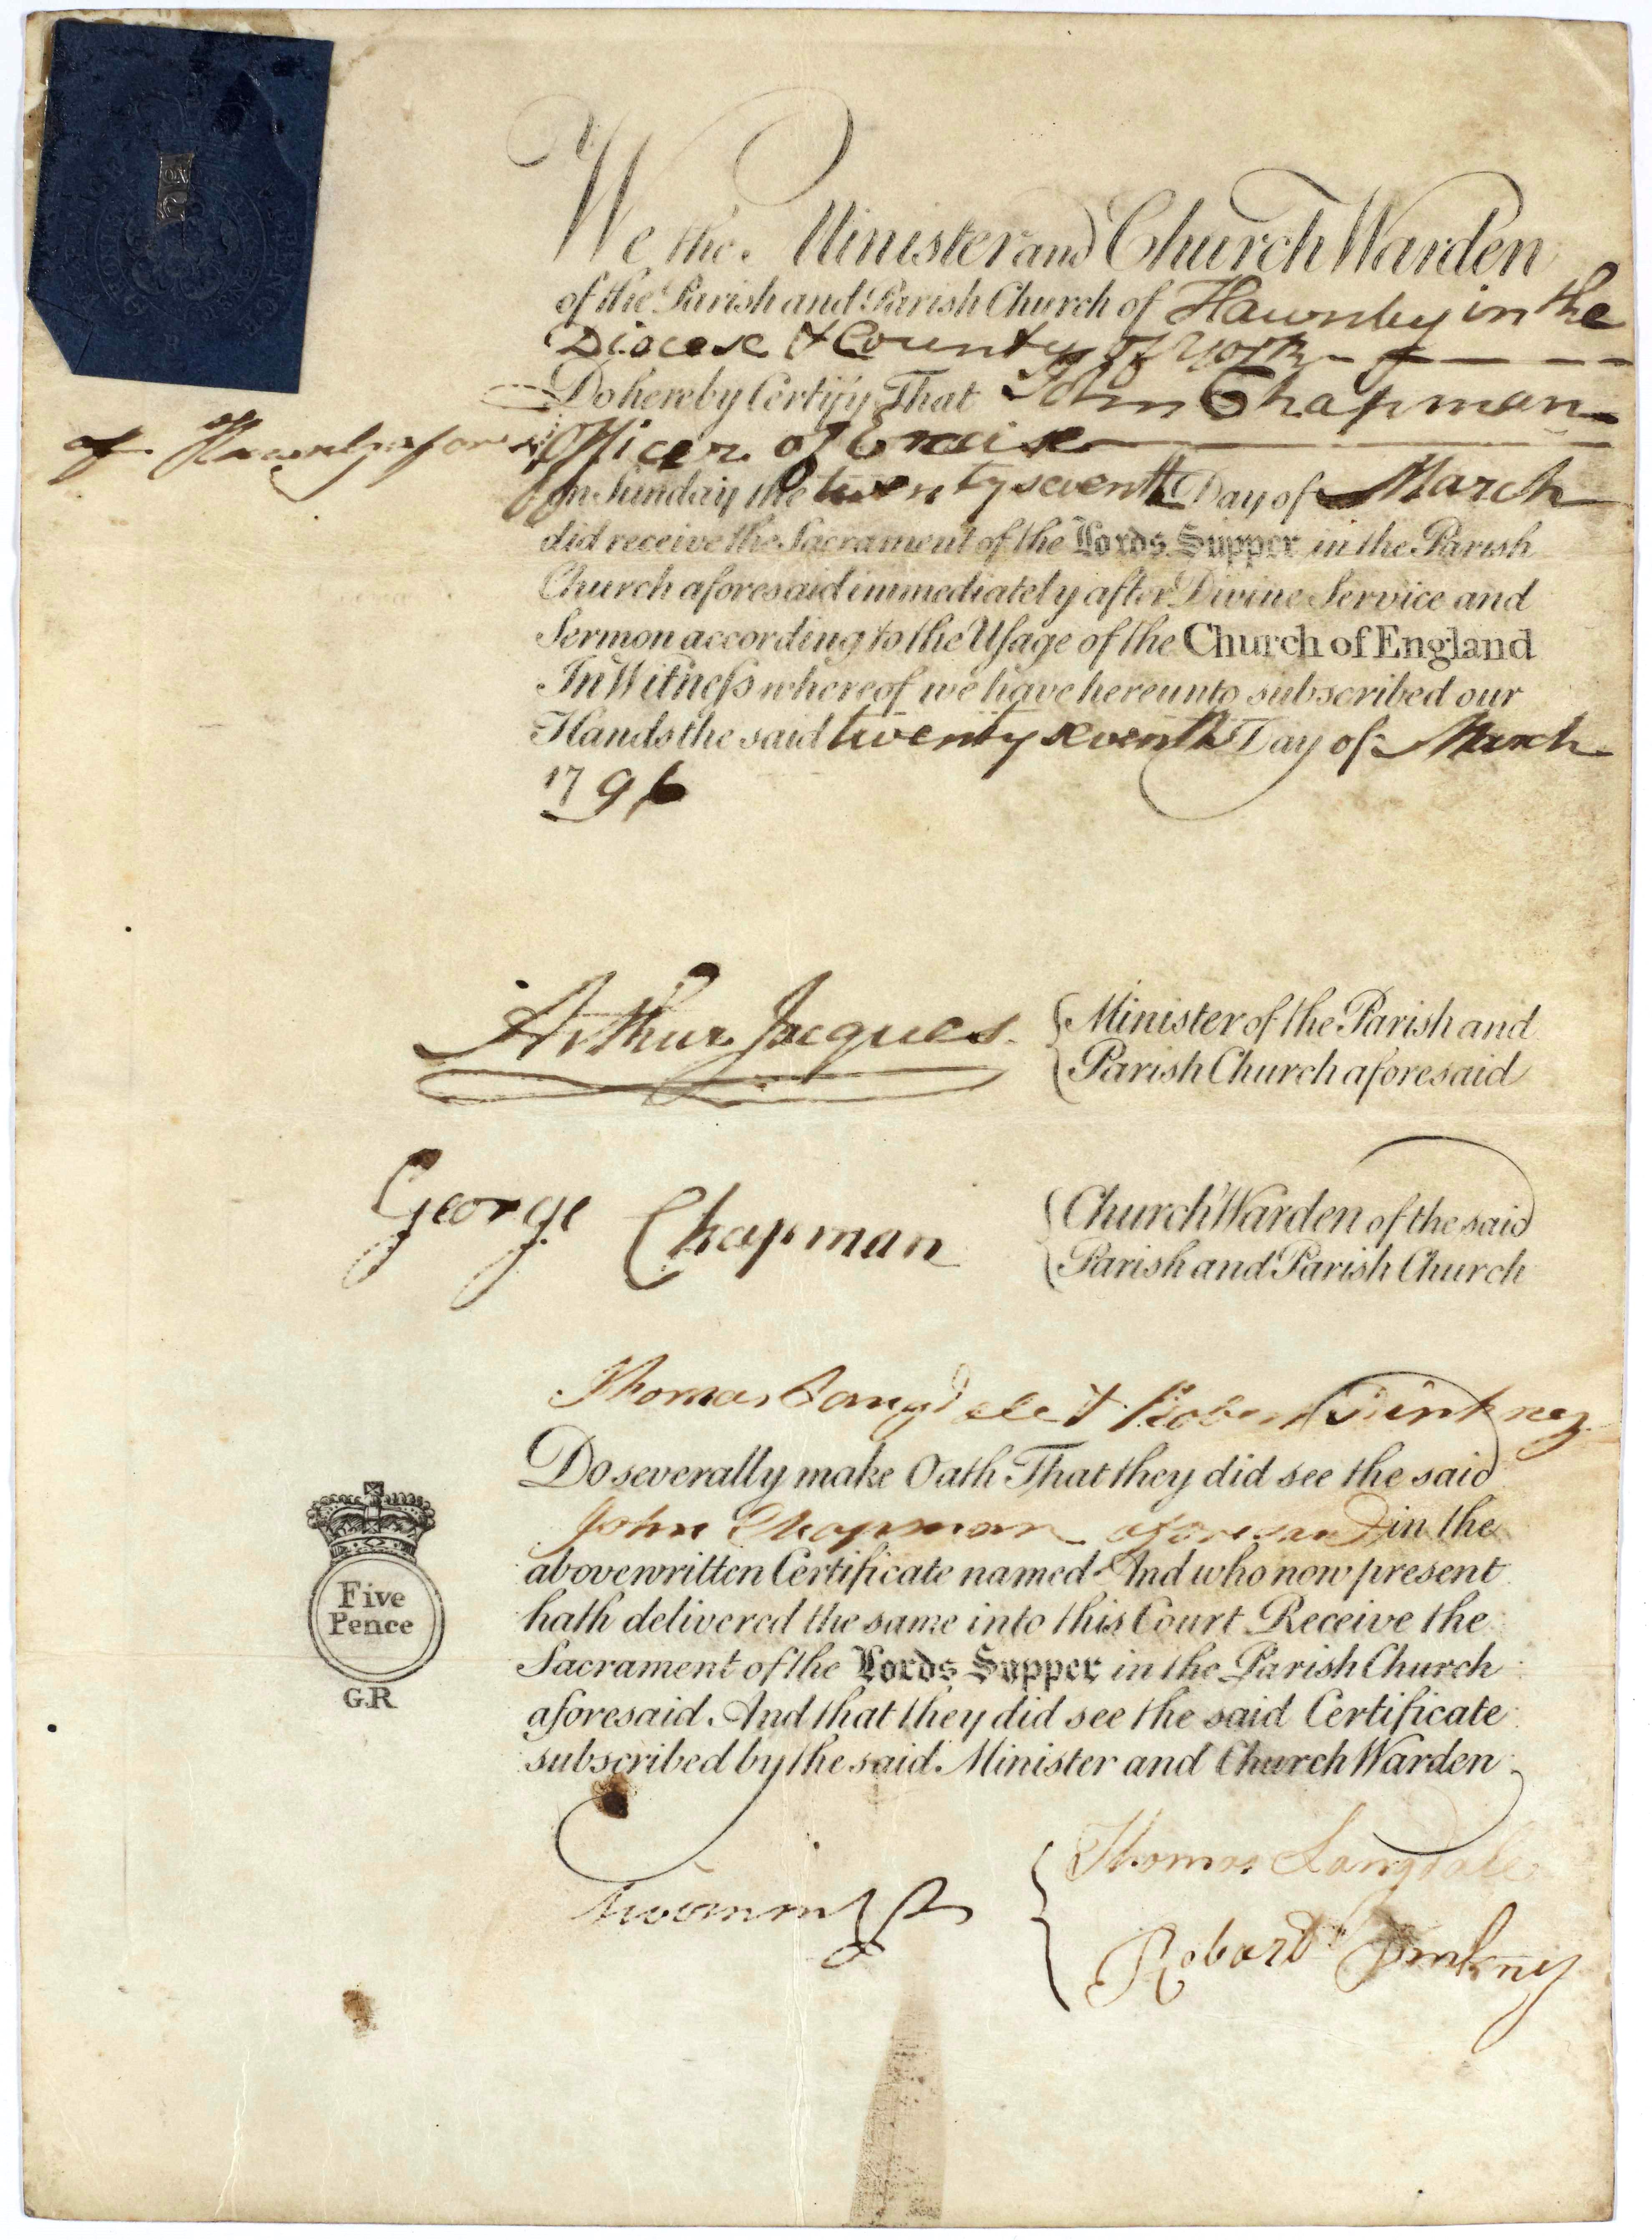 We the Minister and Church Warden
of the Parish and Parish Church of Hawnby in the
Diocese & County of York
Do hereby Certify That John Chapman
of Hawnby afores.d Officer of Excise
on Sunday the twenty seventh Day of March
did receive the Sacrament of the Lords Supper in the Parish
Church aforesaid immediately after Divine Service and
Sermon according to the Usage of the Church of England
In Witness whereof we have hereunto subscribed our
Hands the said twenty seventh Day of March
1796
Arthur Jaques. Minister of the Parish and
Parish Church aforesaid
George Chapman Church Warden of the said
Parish and Parish Church
Thomas Langdale & Robert Pinkney
Do severally make Oath That they did see the said
John Chapman aforesaid in the
abovewritten Certificate named And who now present
hath delivered the same into this Court Receive the
Sacrament of the Lords Supper in the Parish Church
aforesaid. And that they did see the said Certificate
subscribed by the said Minister and Church Warden
Five
Pence
G.R
Thomas Langdale
Robart Pinkney